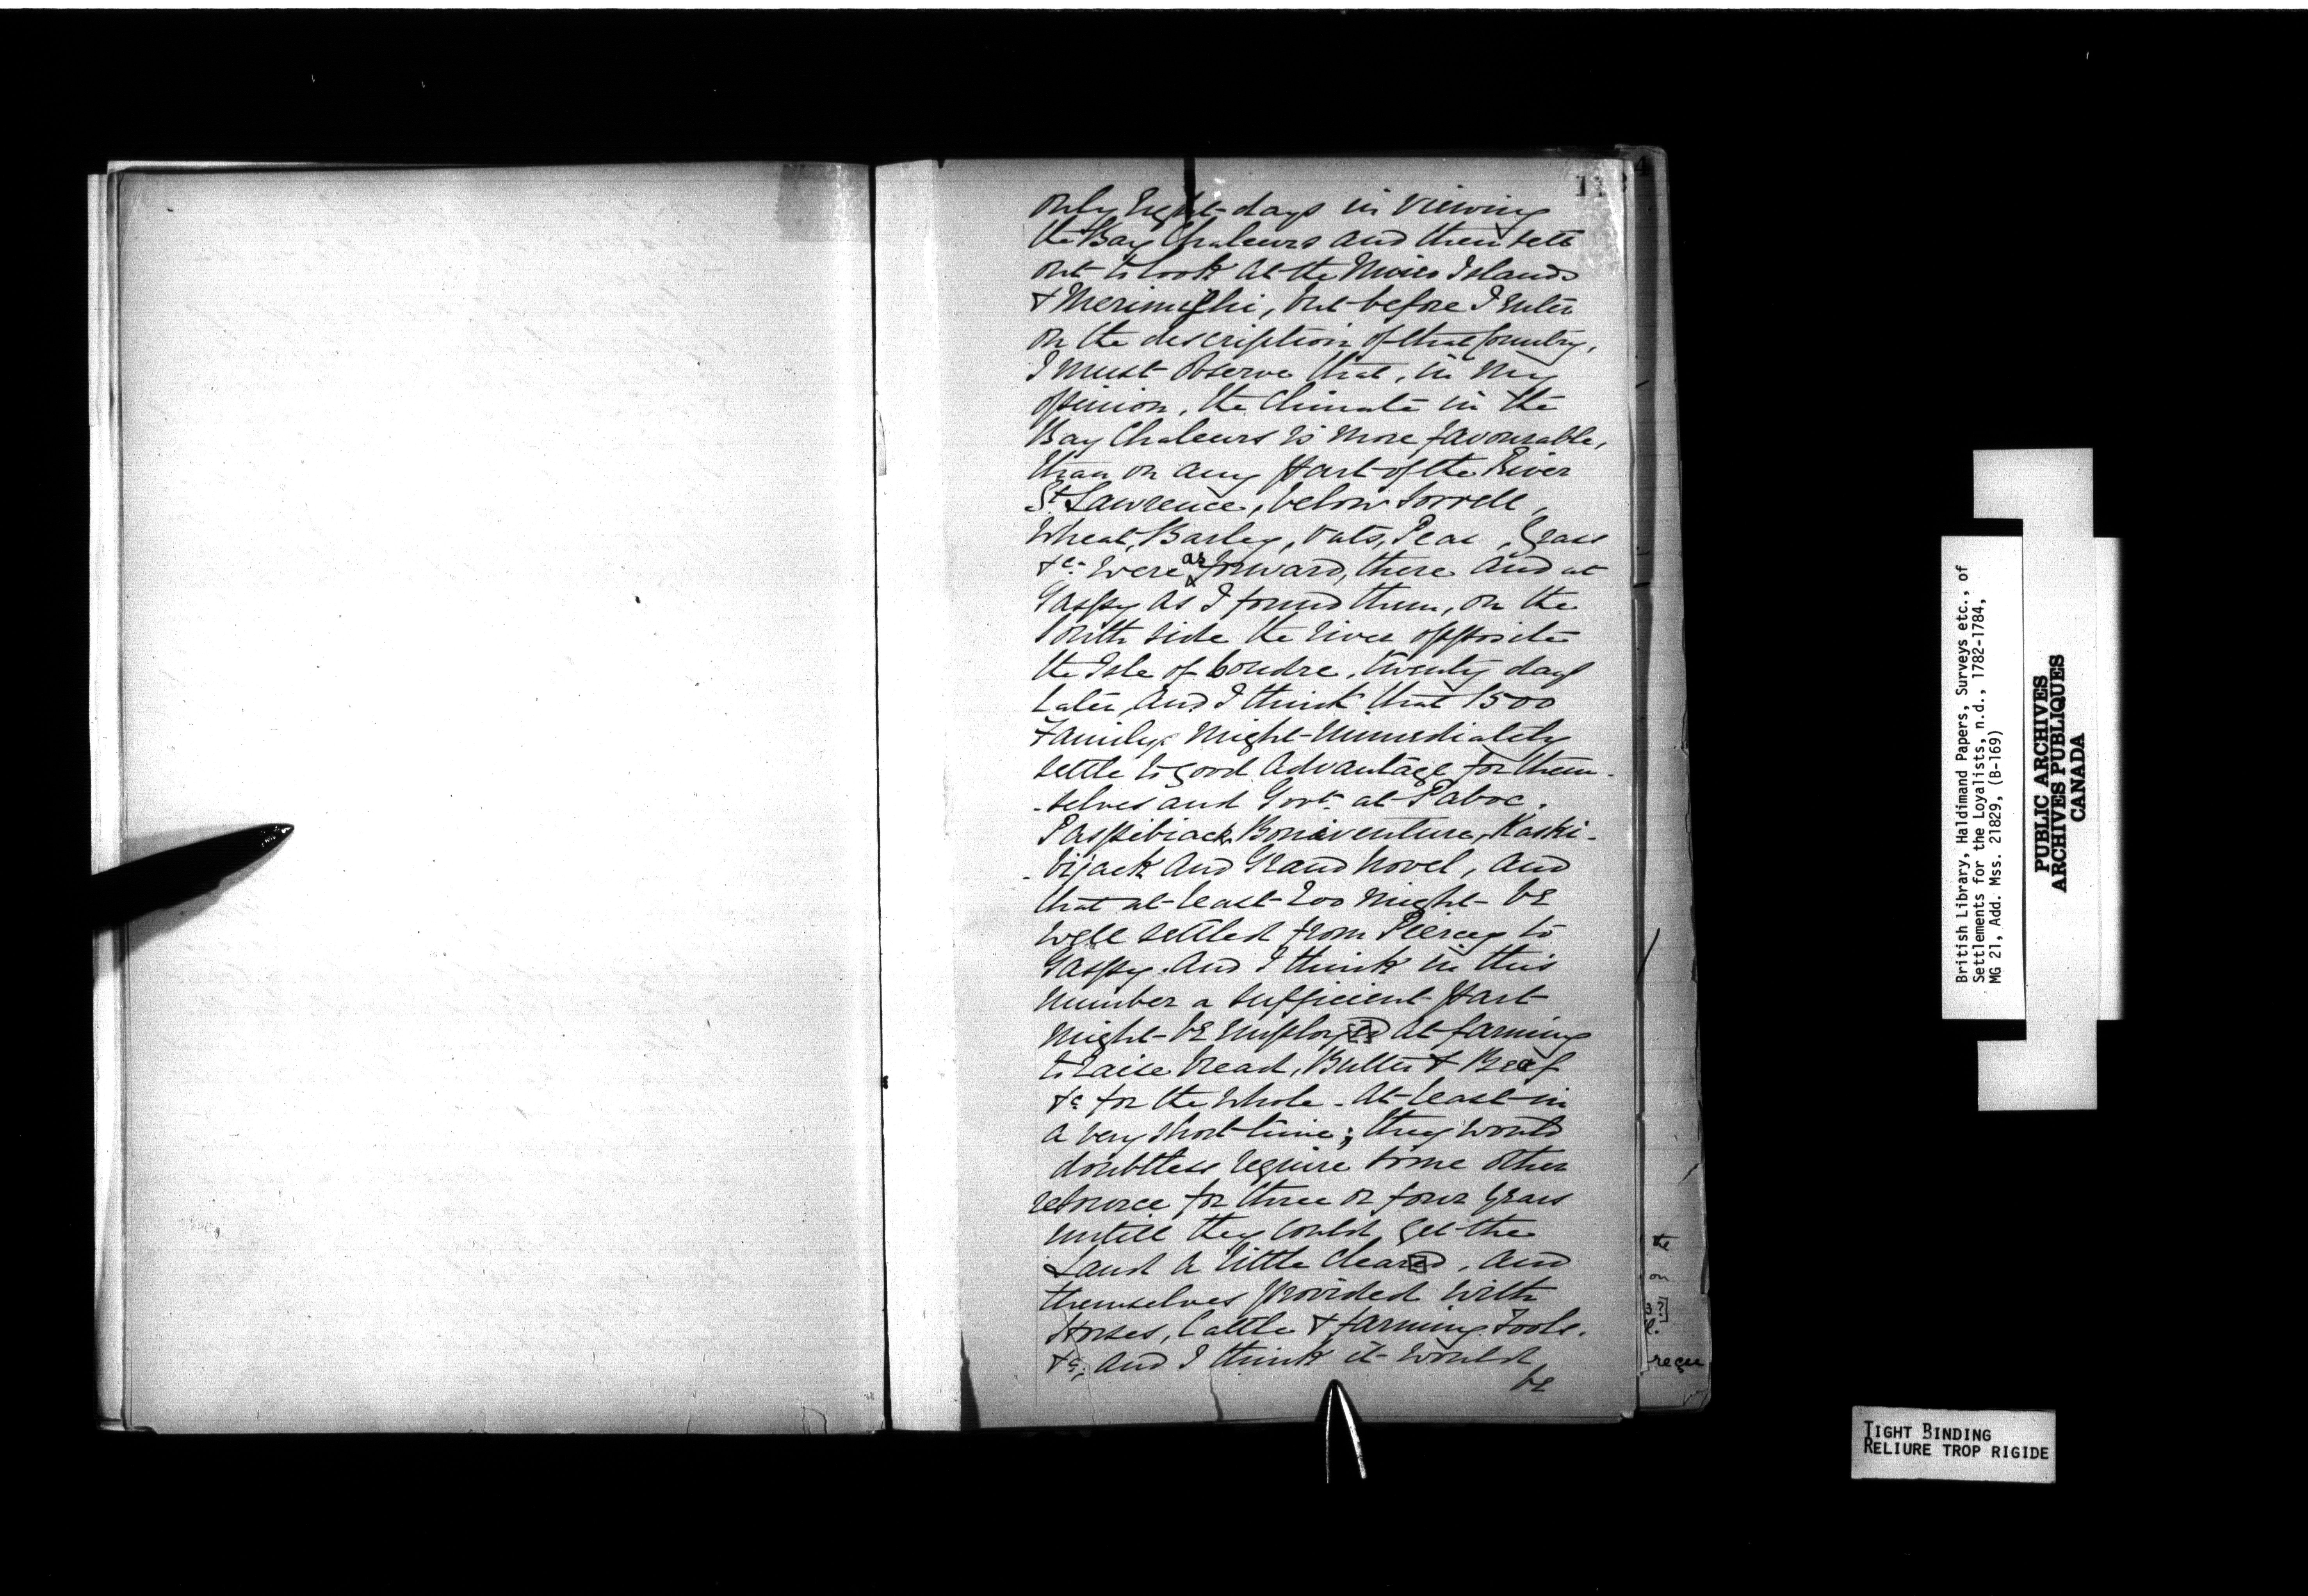 only Eight days in viewing
the Bay Chaleurs and then sett
out to look at the Islands
& Merimishi, but before I enter
on the description of that Country,
I must observe that, in my
opinion, the Climate in the
Bay Chaleurs is more favourable,
than on any part of the River
St. Lawrence, below Sorrell,
Wheat, Barley, Oats, Peas, Grass
&c. were as forward, there and at
Gaspy as I found them, on the
South side the river opposite
the Isle of Coudre, twenty days
later, and I think that 1500
Familys might immediately
settle to good advantage for them-
-selves and Govt. at Paboc,
Paspibiack, Bonaventure, Kaski-
-bijack and Grand Novel, and
that at least 200 might be
well settled from Piercy to
Gaspy. And I think in this
number a sufficient part
might be employ[e]d at farming
to raise bread, Butter & Beef
&c for the whole. At least in
a very short time; they would
doubtless require some other
resource for three or four years
untill they could get the
Land a little clear[e]d, and
themselves provided with
Horses, Cattle & farming Tools.
&c; and I think it would
be
the
on
s?]
reçu
British Library, Haldimand Papers, Surveys etc., of
Settlements for the Loyalists, n.d., 1782-1784,
MG 21, Add. Mss. 21829, (B-169)
PUBLIC ARCHIVES
ARCHIVES PUBLIQUES
CANADA
TIGHT BINDING
RELIURE TROP RIGIDE